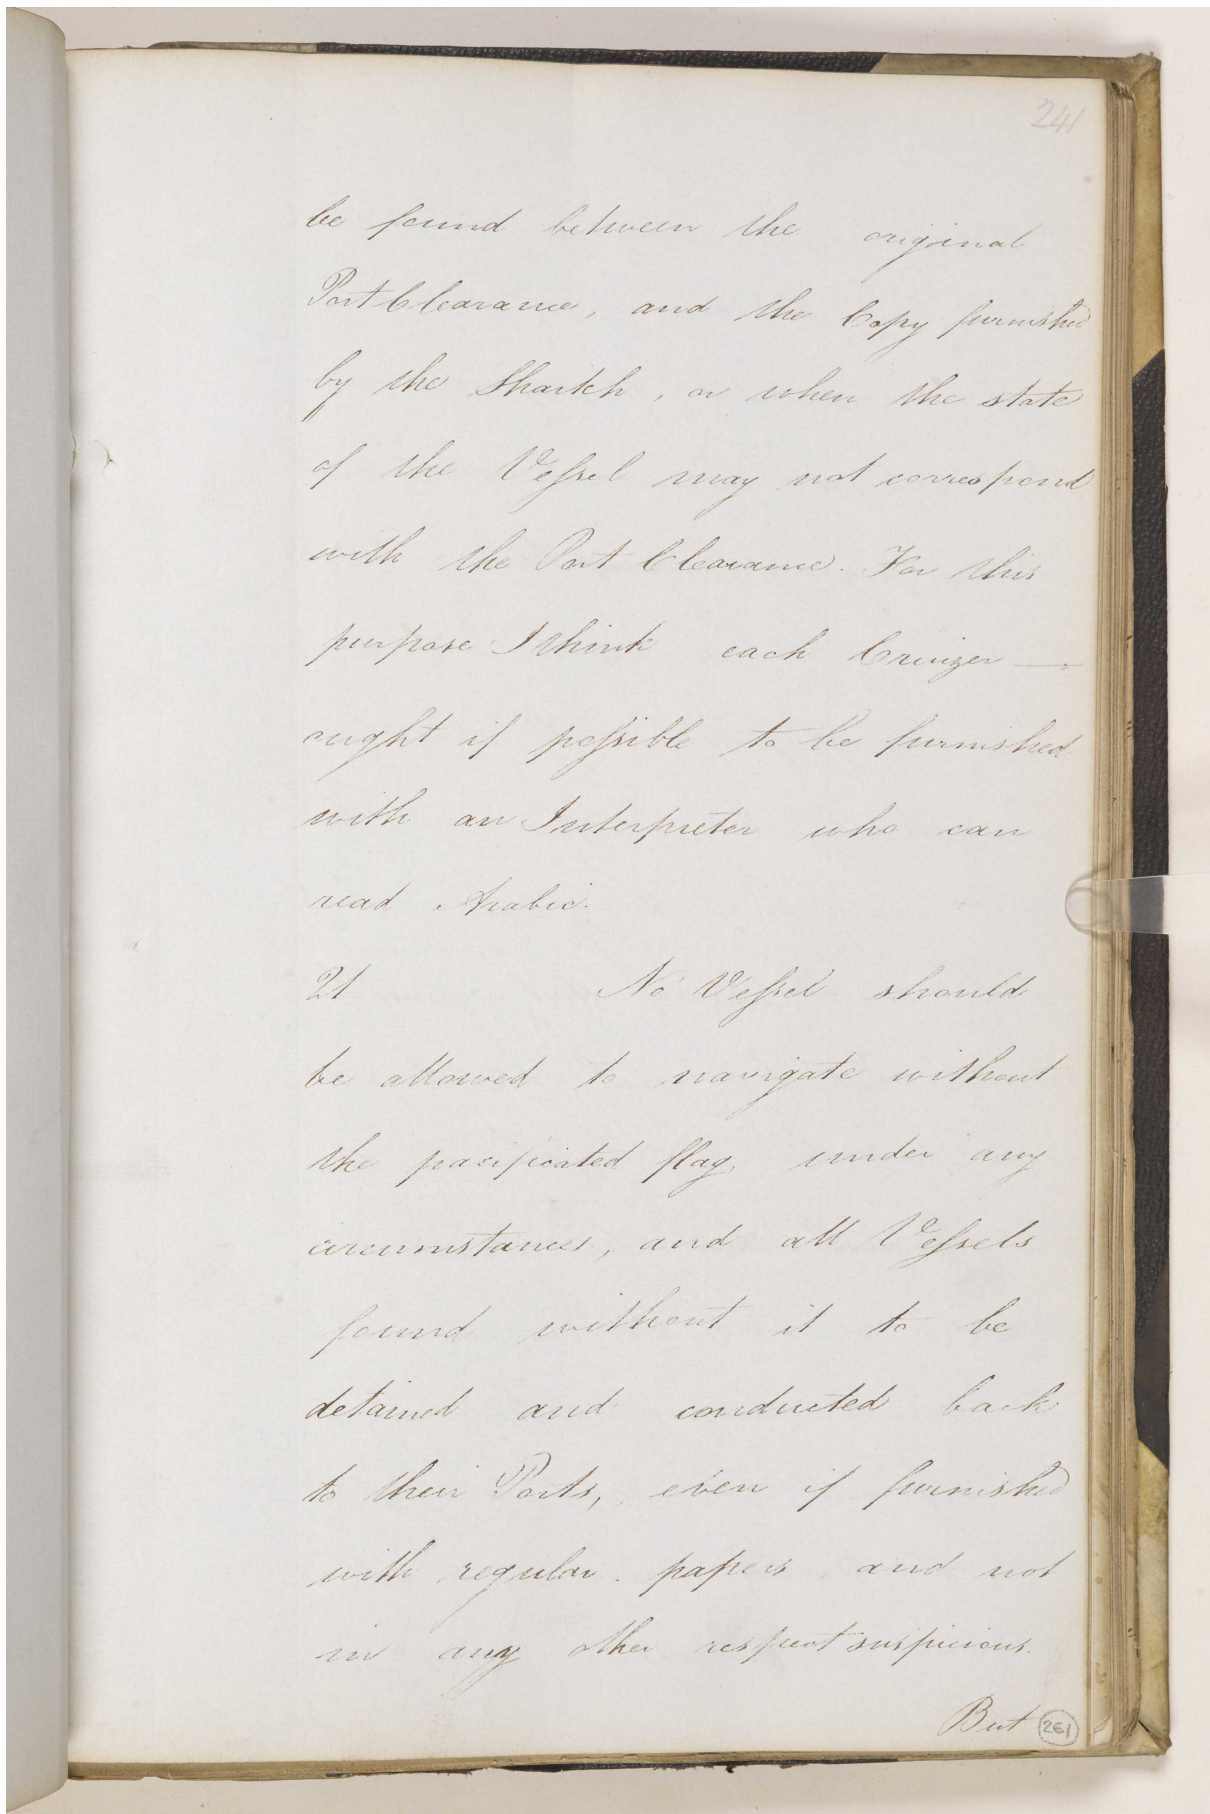 241
be found between the original
Port Clearance, and the Copy furnished
by the Shaikh, or when the state
of the Vessel may not correspond
with the Port Clearance. For this
purpose I think each Cruizer —
ought if possible to be furnished
with an Interpreter who can
read Arabic.
21 No Vessel should
be allowed to navigate without
the pacificated flag, under any
circumstances, and all Vessels
found without it to be
detained and conducted back
to their Ports, even if furnished
with regular papers and not
in any other respect suspicious.
But
261